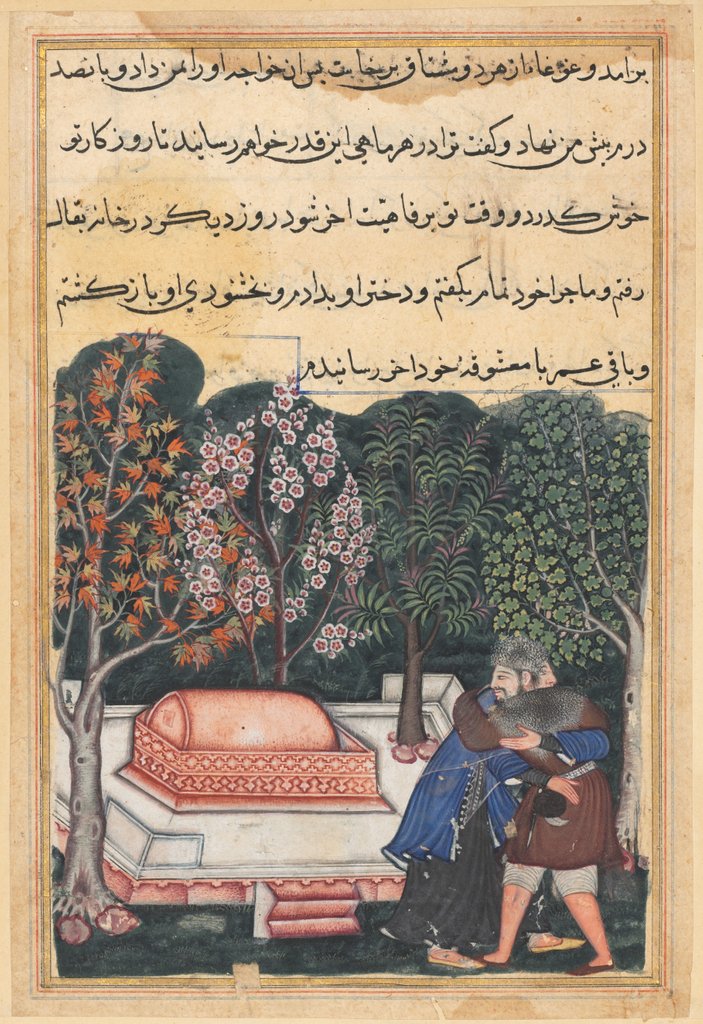 برامد و غوغا از هر دو مشتاق برخاست پس ان خواجه او را بمن داد و پانصد
درم پیش من نهاد و کفت ترا در هر ماهی این قدر خواهم رسانید تا روز کار تو
خوش کدرد و وقت تو برفاهیت اخر شود روز دیکر در خانه بقال
رفتم و ماجرا خود تمام بکفتم و دختر او بدادم و بخشنودی او باز کشتم
و باقی عمر با معشوقهٔ خود اخر رسانیدم